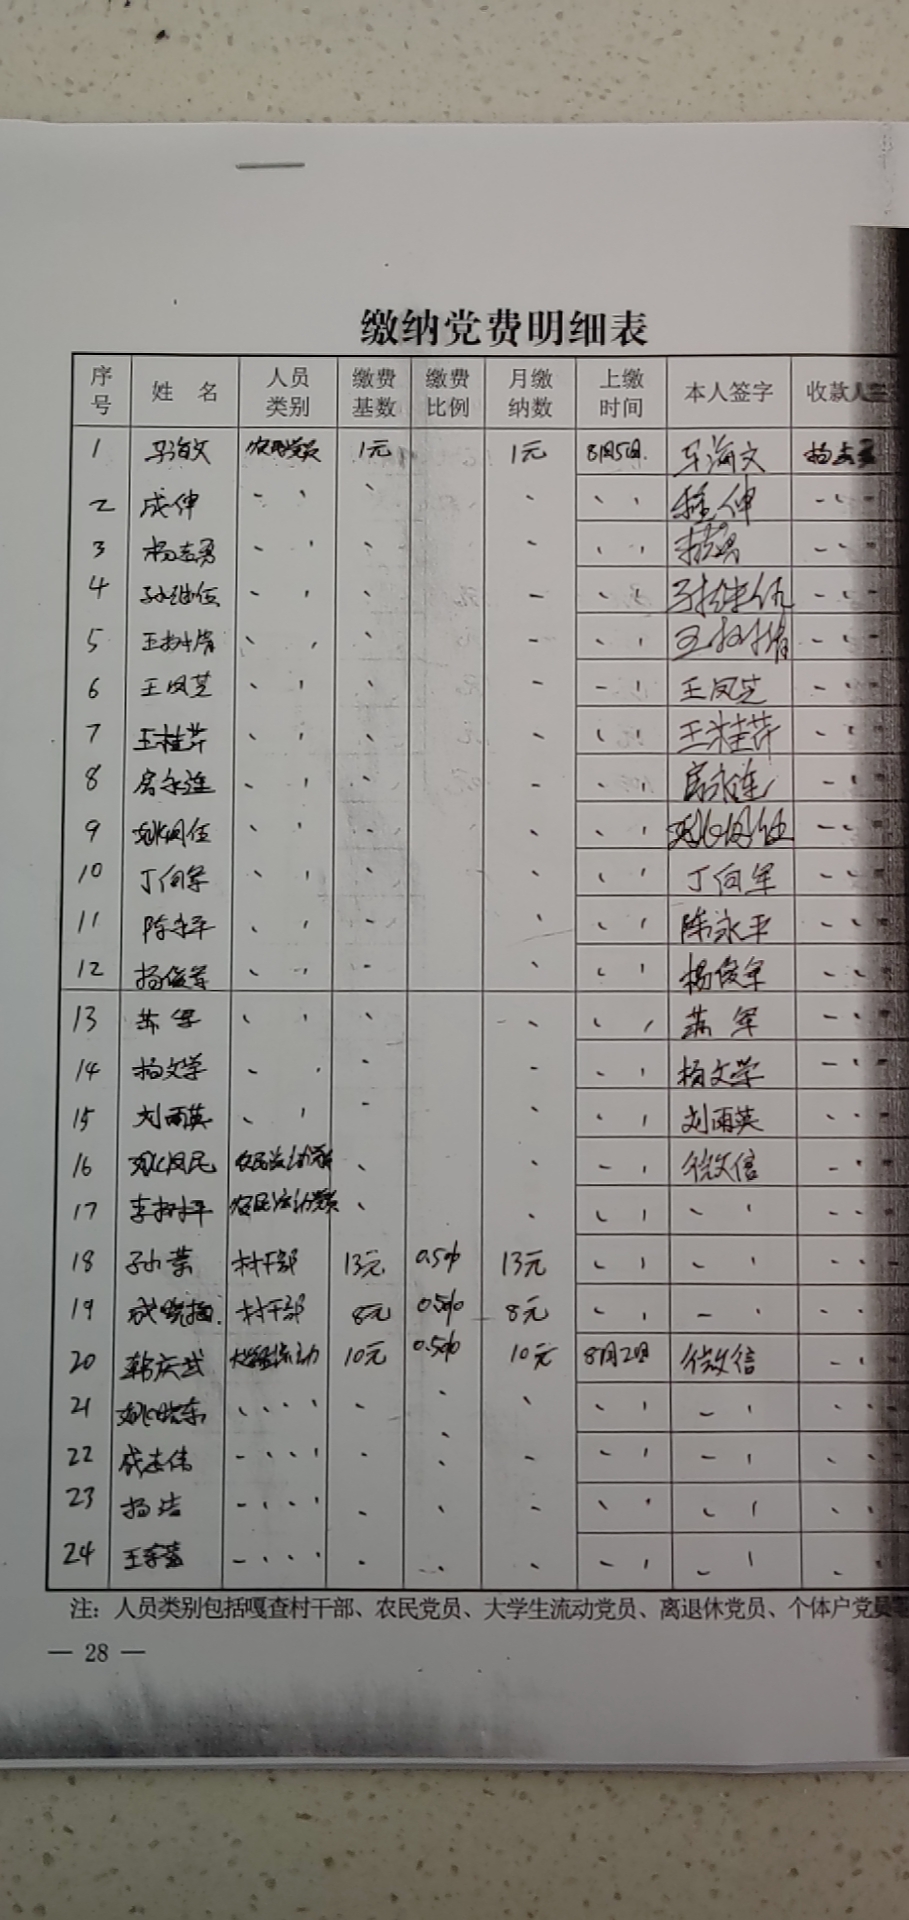 缴纳党费明细表
序号 姓 名 人员类别 缴费基数 缴费比例 月缴纳数 上缴时间 本人签字 收款人
1 马海文 农民党员 1元 1元 8月5日. 马海文
2 成伸
3 杨志勇
4 孙继伍
5 王树
6 王凤芝 王凤芝
7 王桂芹 王桂芹
8 房永连 房永连
9 姚凤伍 姚凤伍
10 丁向军 丁向军
11 陈永平 陈永平
12 杨俊军 杨俊军
13 苏 军 苏 军
14 杨文学 杨文学
15 刘丽英 刘丽英
16 姚凤民 农民流动党员 微信
17 李树平 农民流动党员
18 孙 村干部 13元 0.5% 13元
19 成晓梅 村干部 8元 0.5% 8元
20 韩庆武 流动 10元 0.5% 10元 8月2日 微信
21 姚晓东
22 成志伟
23 杨洁
24 王
注：人员类别包括嘎查村干部、农民党员、大学生流动党员、离退休党员、个体户党员
— 28 —